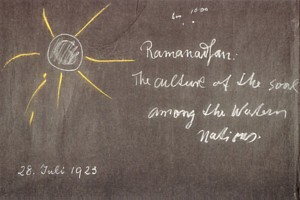 Ramanadhan:
The culture of the soul
among the Western
Nations.
28. Juli 1923